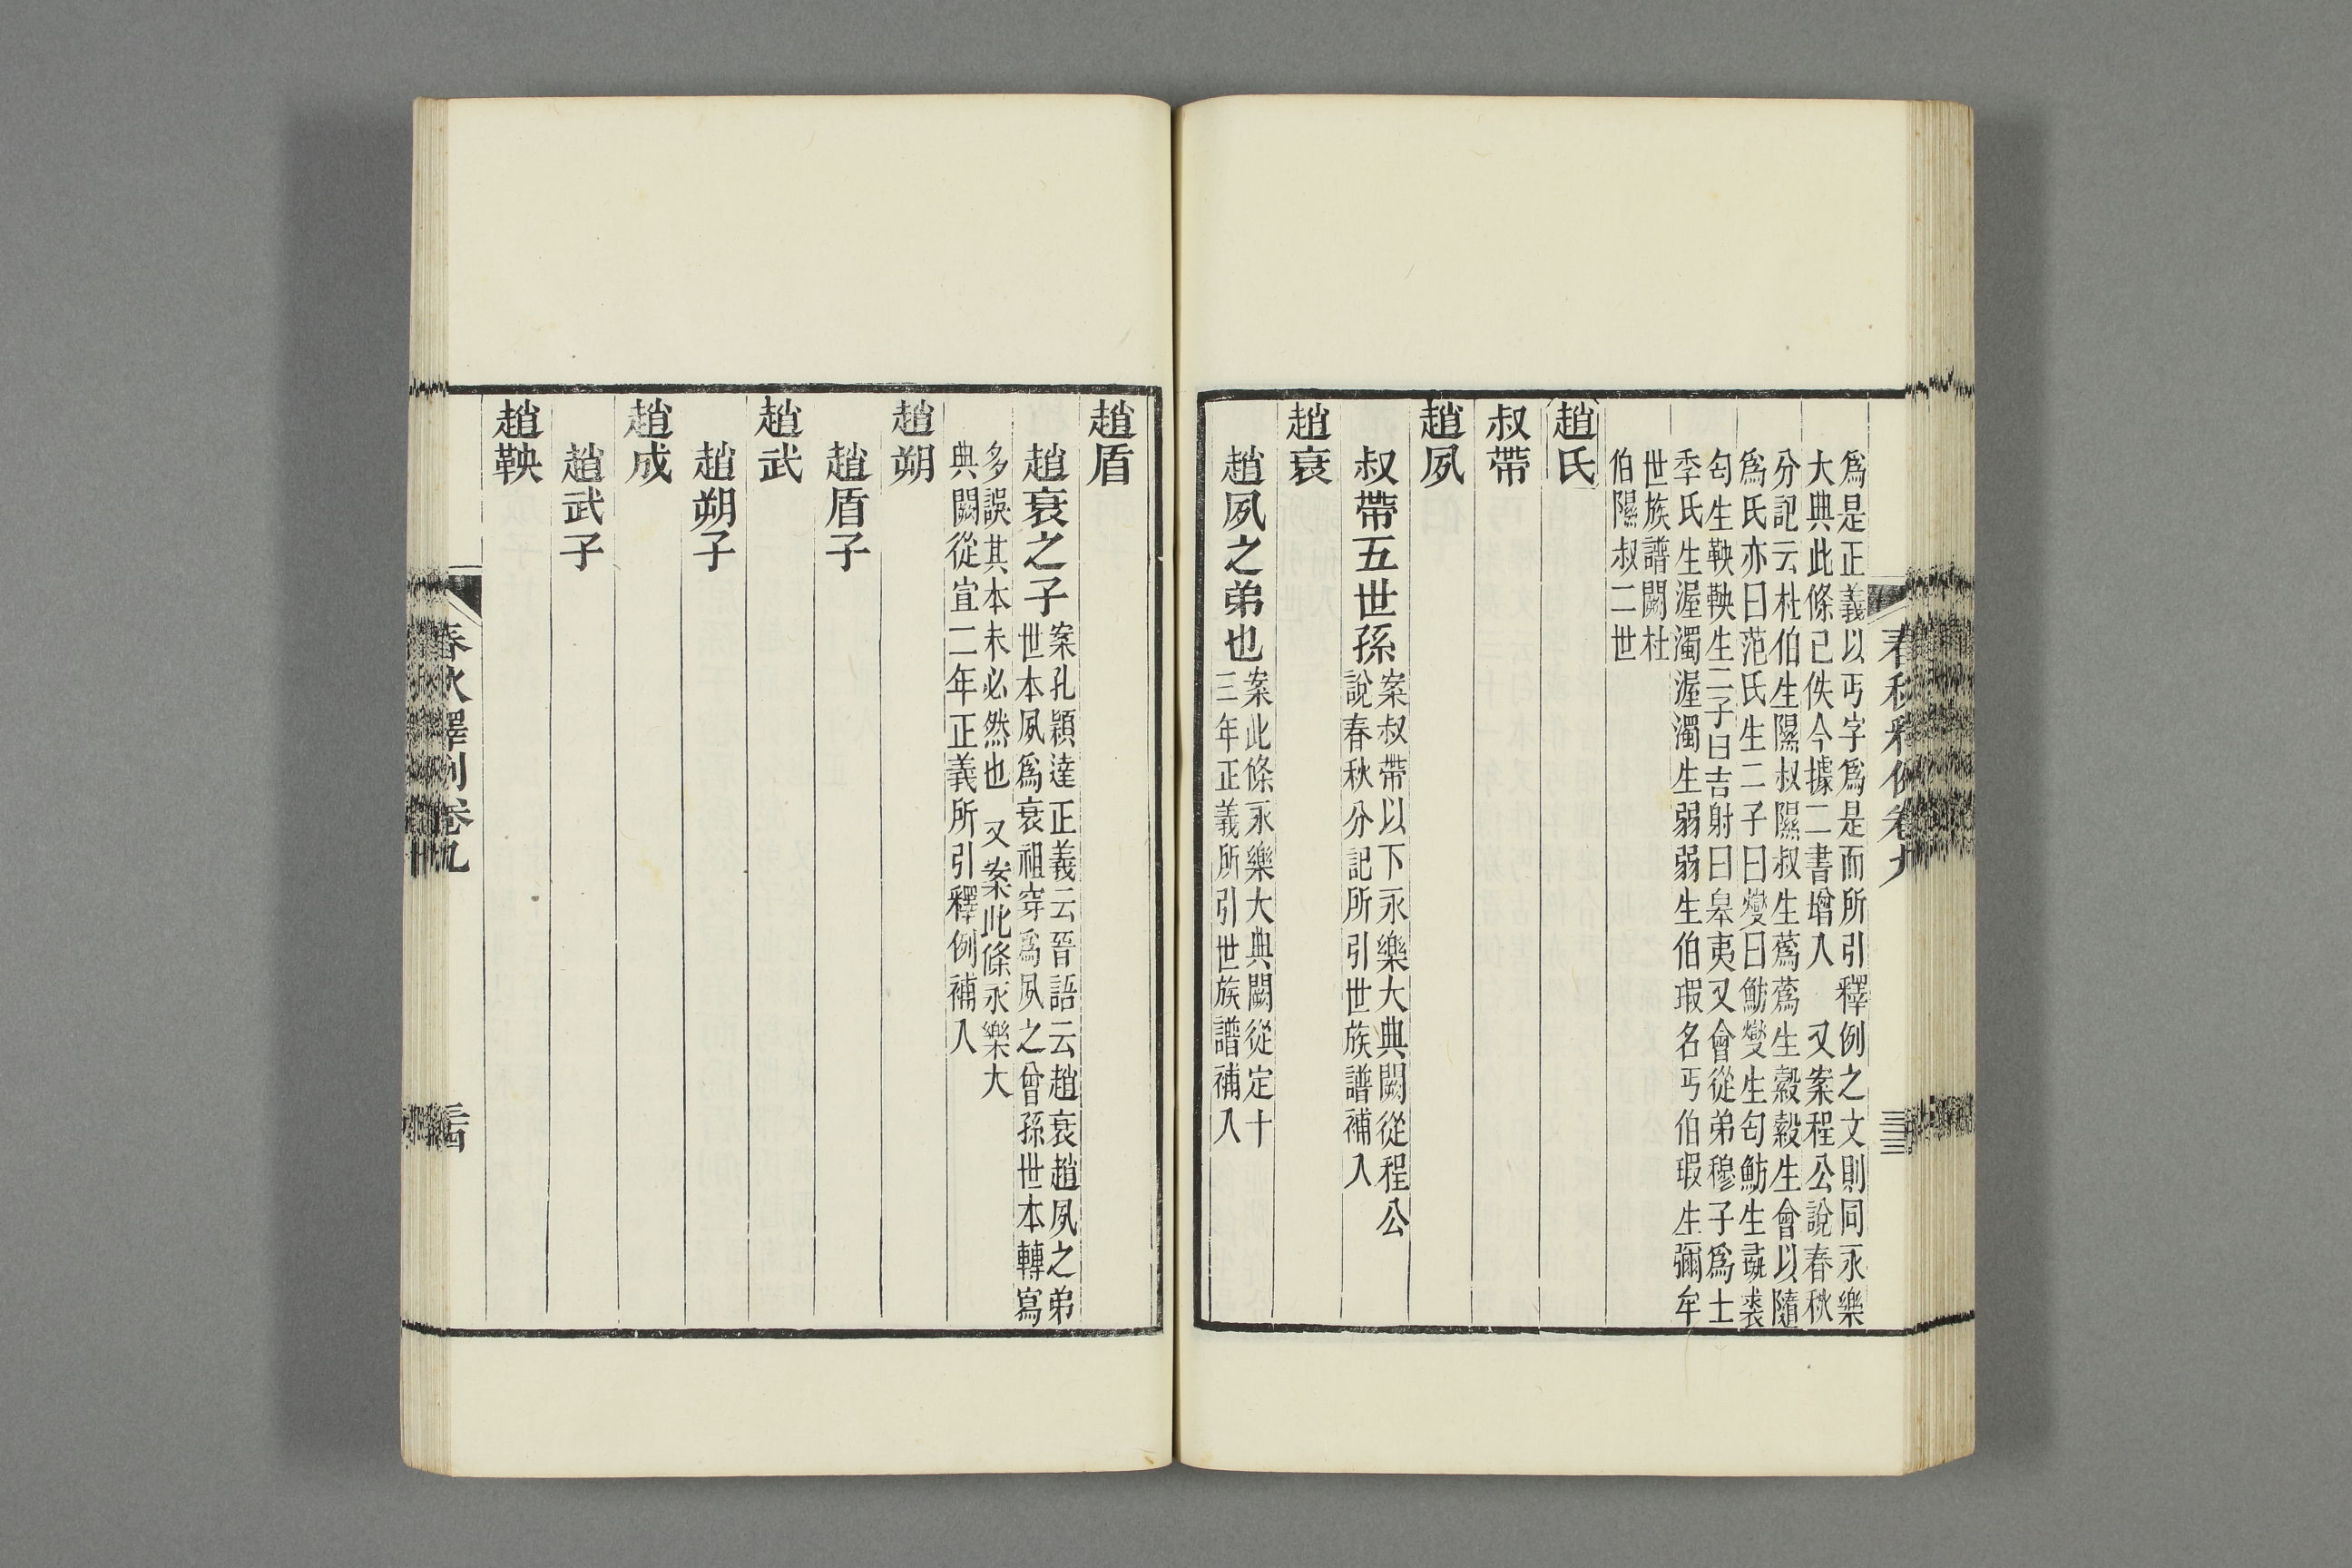 春秋釋例卷九
三
爲是正義以丐字爲是而所引釋例之文則同永樂
大典此條已佚今據二書增入　又案程公說春秋
分記云杜伯生隰叔隰叔生蔿蔿生縠縠生會以隨
爲氏亦曰范氏生二子曰燮曰魴燮生匄魴生彘裘
匄生鞅鞅生二子曰吉射曰皋夷又會從弟穆子爲士
季氏生渥濁渥濁生弱弱生伯瑕名丐伯瑕生彌牟
世族譜闕杜
伯隰叔二世
趙氏
叔帶
趙夙
叔帶五世孫
案叔帶以下永樂大典闕從程公
說春秋分記所引世族譜補入
趙衰
趙夙之弟也
案此條永樂大典闕從定十
三年正義所引世族譜補入
趙盾
趙衰之子
案孔穎達正義云晉語云趙衰趙夙之弟
世本夙爲衰祖穿爲夙之曾孫世本轉寫
多誤其本未必然也　又案此條永樂大
典闕從宣二年正義所引釋例補入
趙朔
趙盾子
趙武
趙朔子
趙成
趙武子
趙鞅
春秋釋例卷九